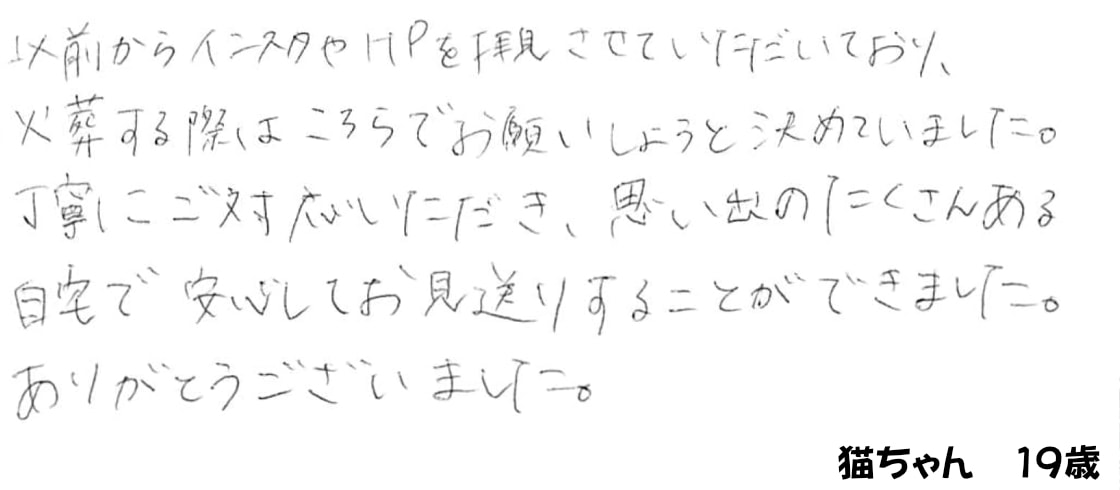 以前からインスタやHPを拝見させていただいており、
火葬する際はこちらでお願いしようと決めていました。
丁寧にご対応いただき、思い出のたくさんある
自宅で安心してお見送りすることができました。
ありがとうございました。
猫ちゃん 19歳